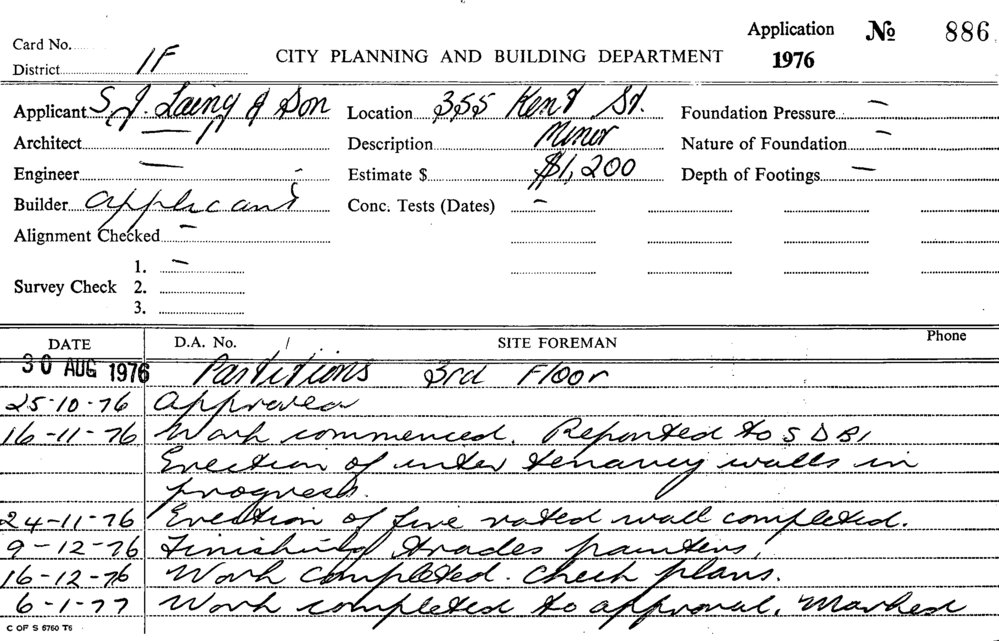 Application № 886
Card No.
CITY PLANNING AND BUILDING DEPARTMENT 1976
District 1F
Applicant S. J. Laing & Son Location 355 Kent St. Foundation Pressure –
Architect — Description Minor Nature of Foundation –
Engineer — Estimate $ $1,200 Depth of Footings —
Builder applicant Conc. Tests (Dates) –
Alignment Checked –
1. –
Survey Check 2.
3.
DATE D.A. No. / SITE FOREMAN Phone
30 AUG 1976 Partitions 3rd Floor
25-10-76 Approved
16-11-76 Work commenced. Reported to S D B I
Erection of inter tenancy walls in
progress.
24-11-76 Erection of fire rated wall completed.
9-12-76 Finishing trades painters,
16-12-76 Work completed. Check plans.
6-1-77 Work completed to approval. Marked
C OF S 6760 T6